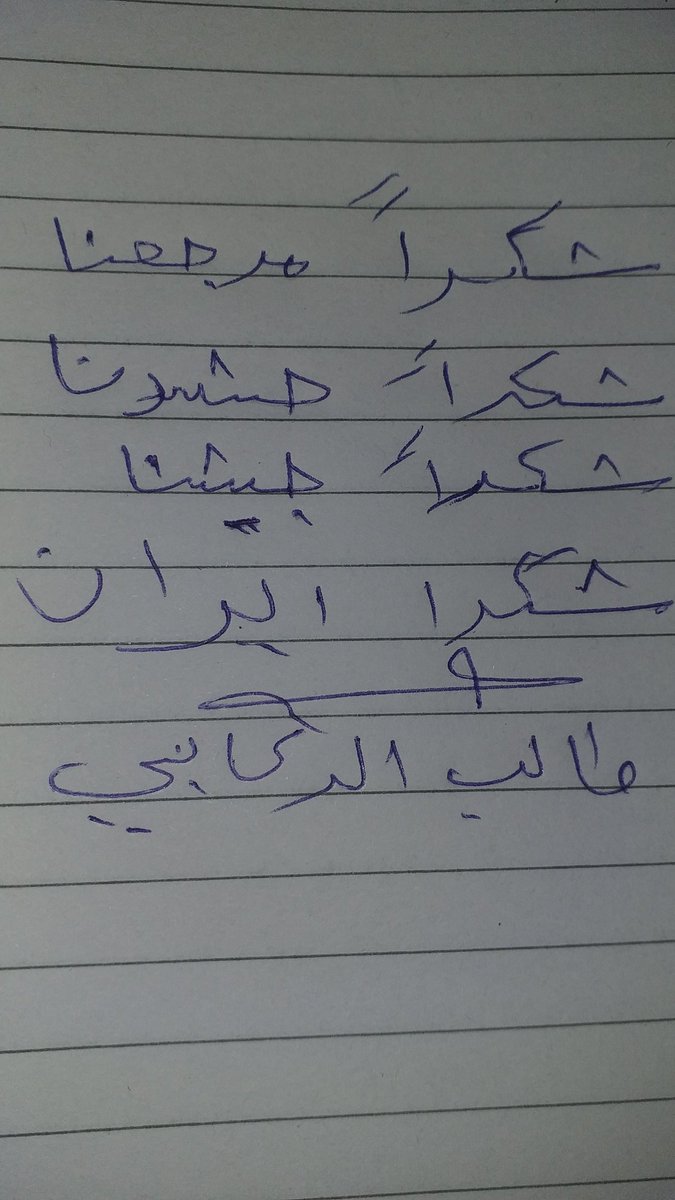 شكراً مرجعنا
شكراً حشدنا
شكراً جيشنا
شكرا ايران
طالب الركابي